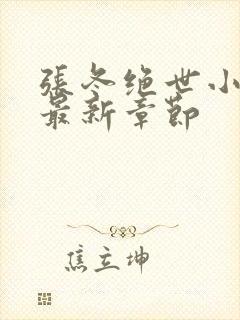 張冬绝世小
最新章節
焦立坤